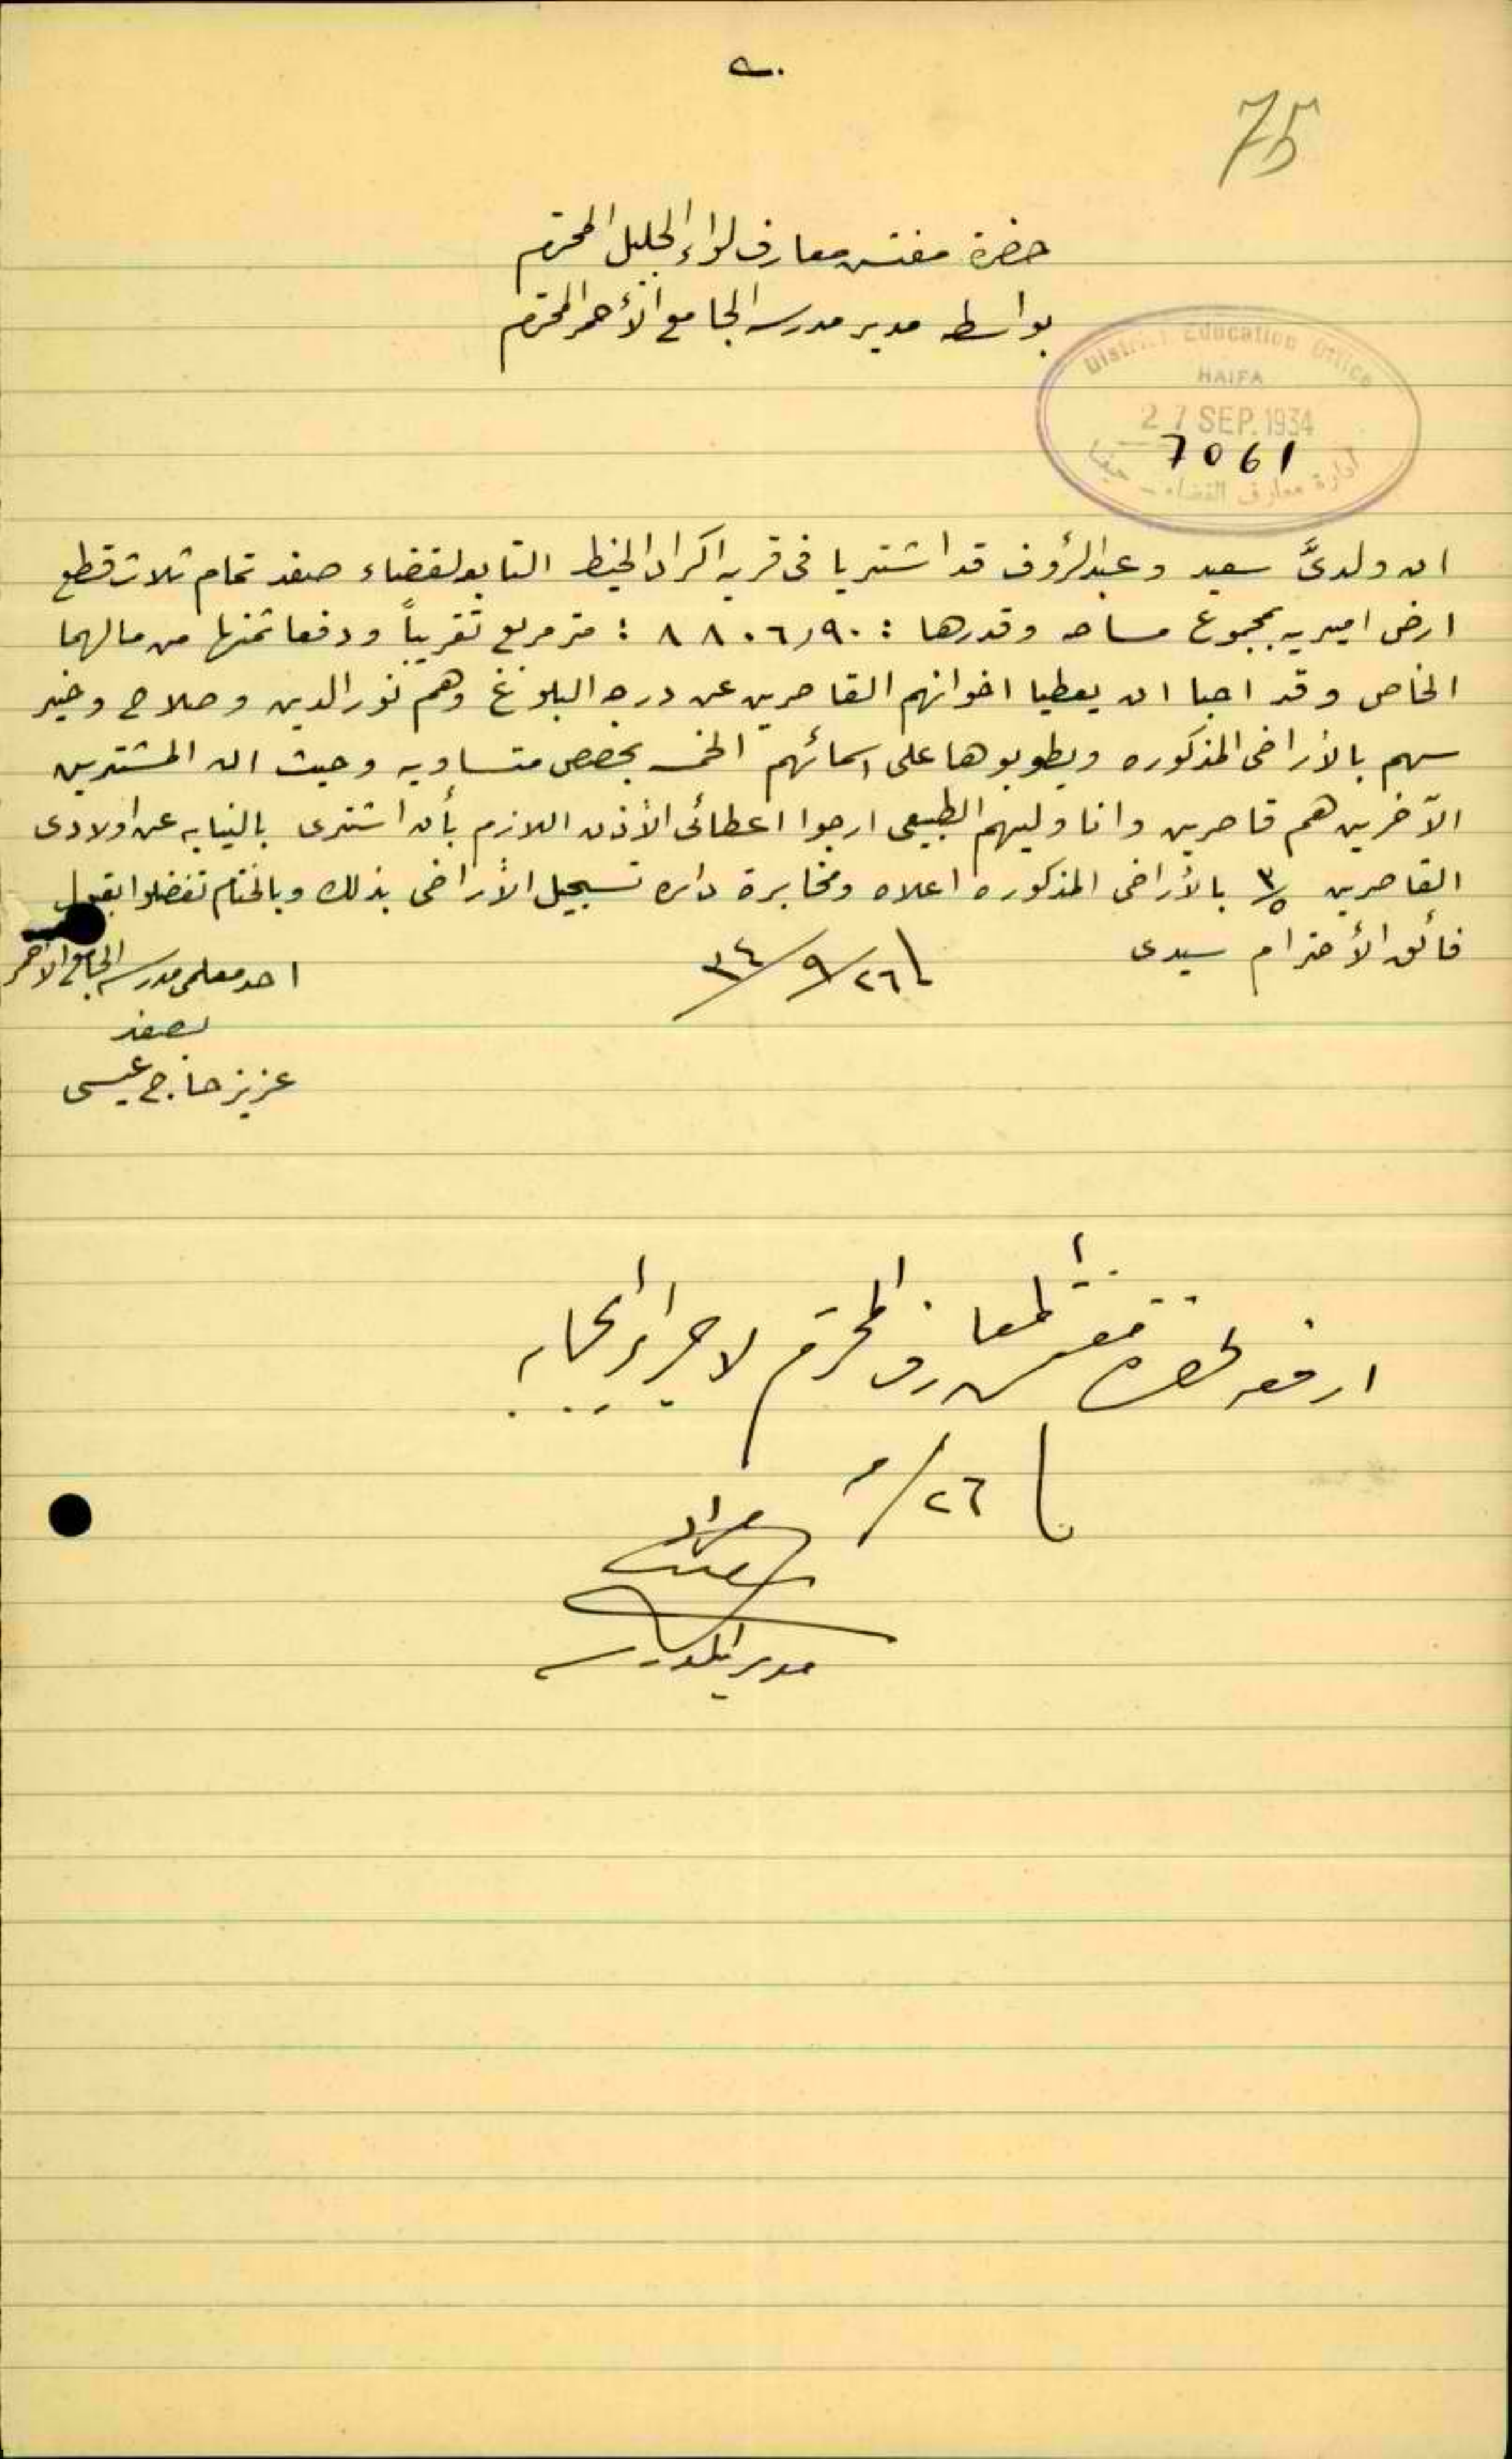 75
حضرة مفتش معارف لواء الجليل المحترم
بواسطه مدير مدرسه الجامع الأحمر المحترم
District Education Office
HAIFA
27 SEP. 1934
7061
ادارة معارف القضاء - حيفا
ان ولديَّ سعيد وعبدالرؤف قد اشتريا فى قريه اكراد الخيط التابع لقضاء صفد تمام ثلاث قطع
ارض اميريه بمجموع مساحه وقدرها : ٨٨٠٦,٩٠ : متر مربع تقريباً ودفعا ثمنها من مالهما
الخاص وقد احبا ان يعطيا اخوانهم القاصرين عن درجه البلوغ وهم نورالدين وصلاح وخير
سهم بالأراضى المذكوره ويطوبوها على اسمائهم الخمسه بحصص متساويه وحيث ان المشتريين
الآخرين هم قاصرين وانا وليهم الطبيعى ارجوا اعطائى الأذن اللازم بأن اشترى بالنيابه عن اولادى
القاصرين ٣/٥ بالأراضى المذكوره اعلاه ومخابرة دائره تسجيل الأراضى بذلك وبالختام تفضلوا بقبول
فائق الأحترام سيدى
٢٦/٩/٣٤
احد معلمى مدرسه الجامع الاحمر
بصفد
عزيز حاج عيسى
ارفعه لحضرة مفتش المعارف المحترم لاجراء ايجابه
٢٦/٩
مدير المدرسه